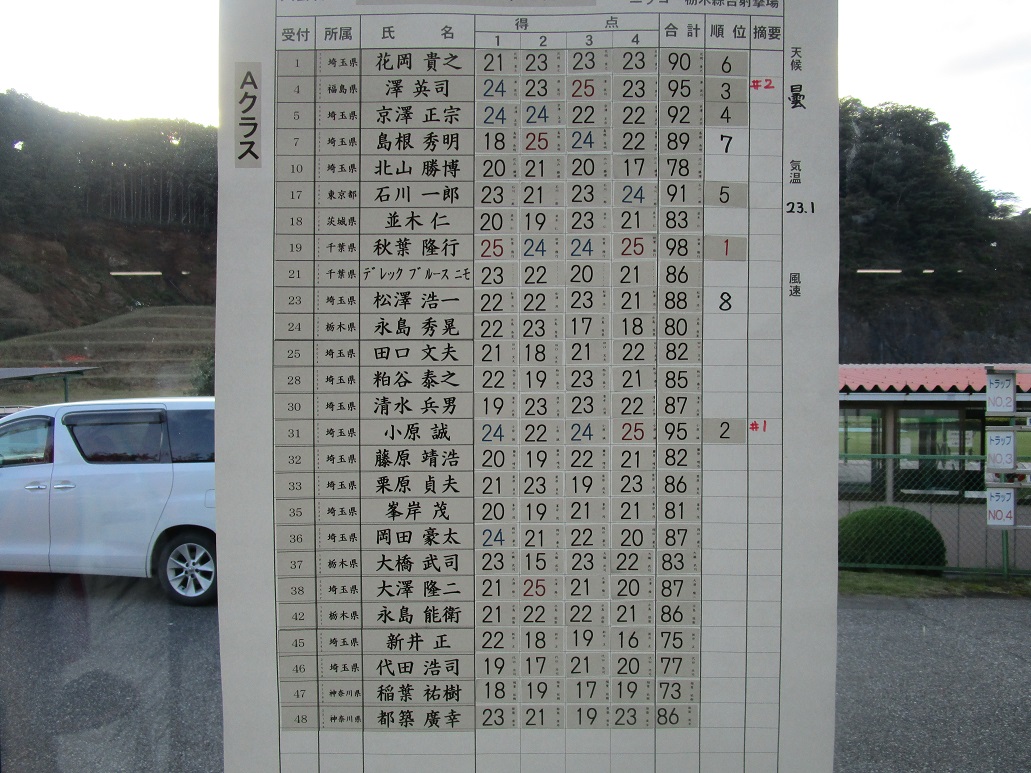 栃木綜合射撃場
受付 所属 氏 名 得 点 合計 順位 摘要
1 2 3 4
Aクラス
1 埼玉県 花岡 貴之 21 23 23 23 90 6
4 福島県 澤 英司 24 23 25 23 95 3 #2
5 埼玉県 京澤 正宗 24 24 22 22 92 4
7 埼玉県 島根 秀明 18 25 24 22 89 7
10 埼玉県 北山 勝博 20 21 20 17 78
17 東京都 石川 一郎 23 21 23 24 91 5
18 茨城県 並木 仁 20 19 23 21 83
19 千葉県 秋葉 隆行 25 24 24 25 98 1
21 千葉県 デレック ブルース ニモ 23 22 20 21 86
23 埼玉県 松澤 浩一 22 22 23 21 88 8
24 栃木県 永島 秀晃 22 23 17 18 80
25 埼玉県 田口 文夫 21 18 21 22 82
28 埼玉県 粕谷 泰之 22 19 23 21 85
30 埼玉県 清水 兵男 19 23 23 22 87
31 埼玉県 小原 誠 24 22 24 25 95 2 #1
32 埼玉県 藤原 靖浩 20 19 22 21 82
33 埼玉県 栗原 貞夫 21 23 19 23 86
35 埼玉県 峯岸 茂 20 19 21 21 81
36 埼玉県 岡田 豪太 24 21 22 20 87
37 栃木県 大橋 武司 23 15 23 22 83
38 埼玉県 大澤 隆二 21 25 21 20 87
42 栃木県 永島 能衛 21 22 22 21 86
45 埼玉県 新井 正 22 18 19 16 75
46 埼玉県 代田 浩司 19 17 21 20 77
47 神奈川県 稲葉 祐樹 18 19 17 19 73
48 神奈川県 都築 廣幸 23 21 19 23 86
天候
曇
気温
23.1
風速
トラップ
NO.2
トラップ
NO.3
トラップ
NO.4